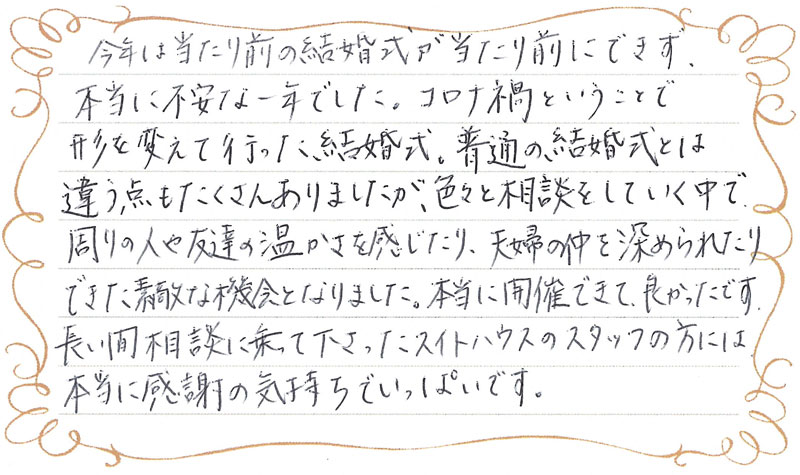 今年は当たり前の結婚式が当たり前にできず、
本当に不安な一年でした。コロナ禍ということで
形を変えて行った結婚式。普通の結婚式とは
違う点もたくさんありましたが、色々と相談をしていく中で、
周りの人や友達の温かさを感じたり、夫婦の仲を深められたり
できた素敵な機会となりました。本当に開催できて、良かったです。
長い間相談に乗って下さったスイトハウスのスタッフの方には
本当に感謝の気持ちでいっぱいです。